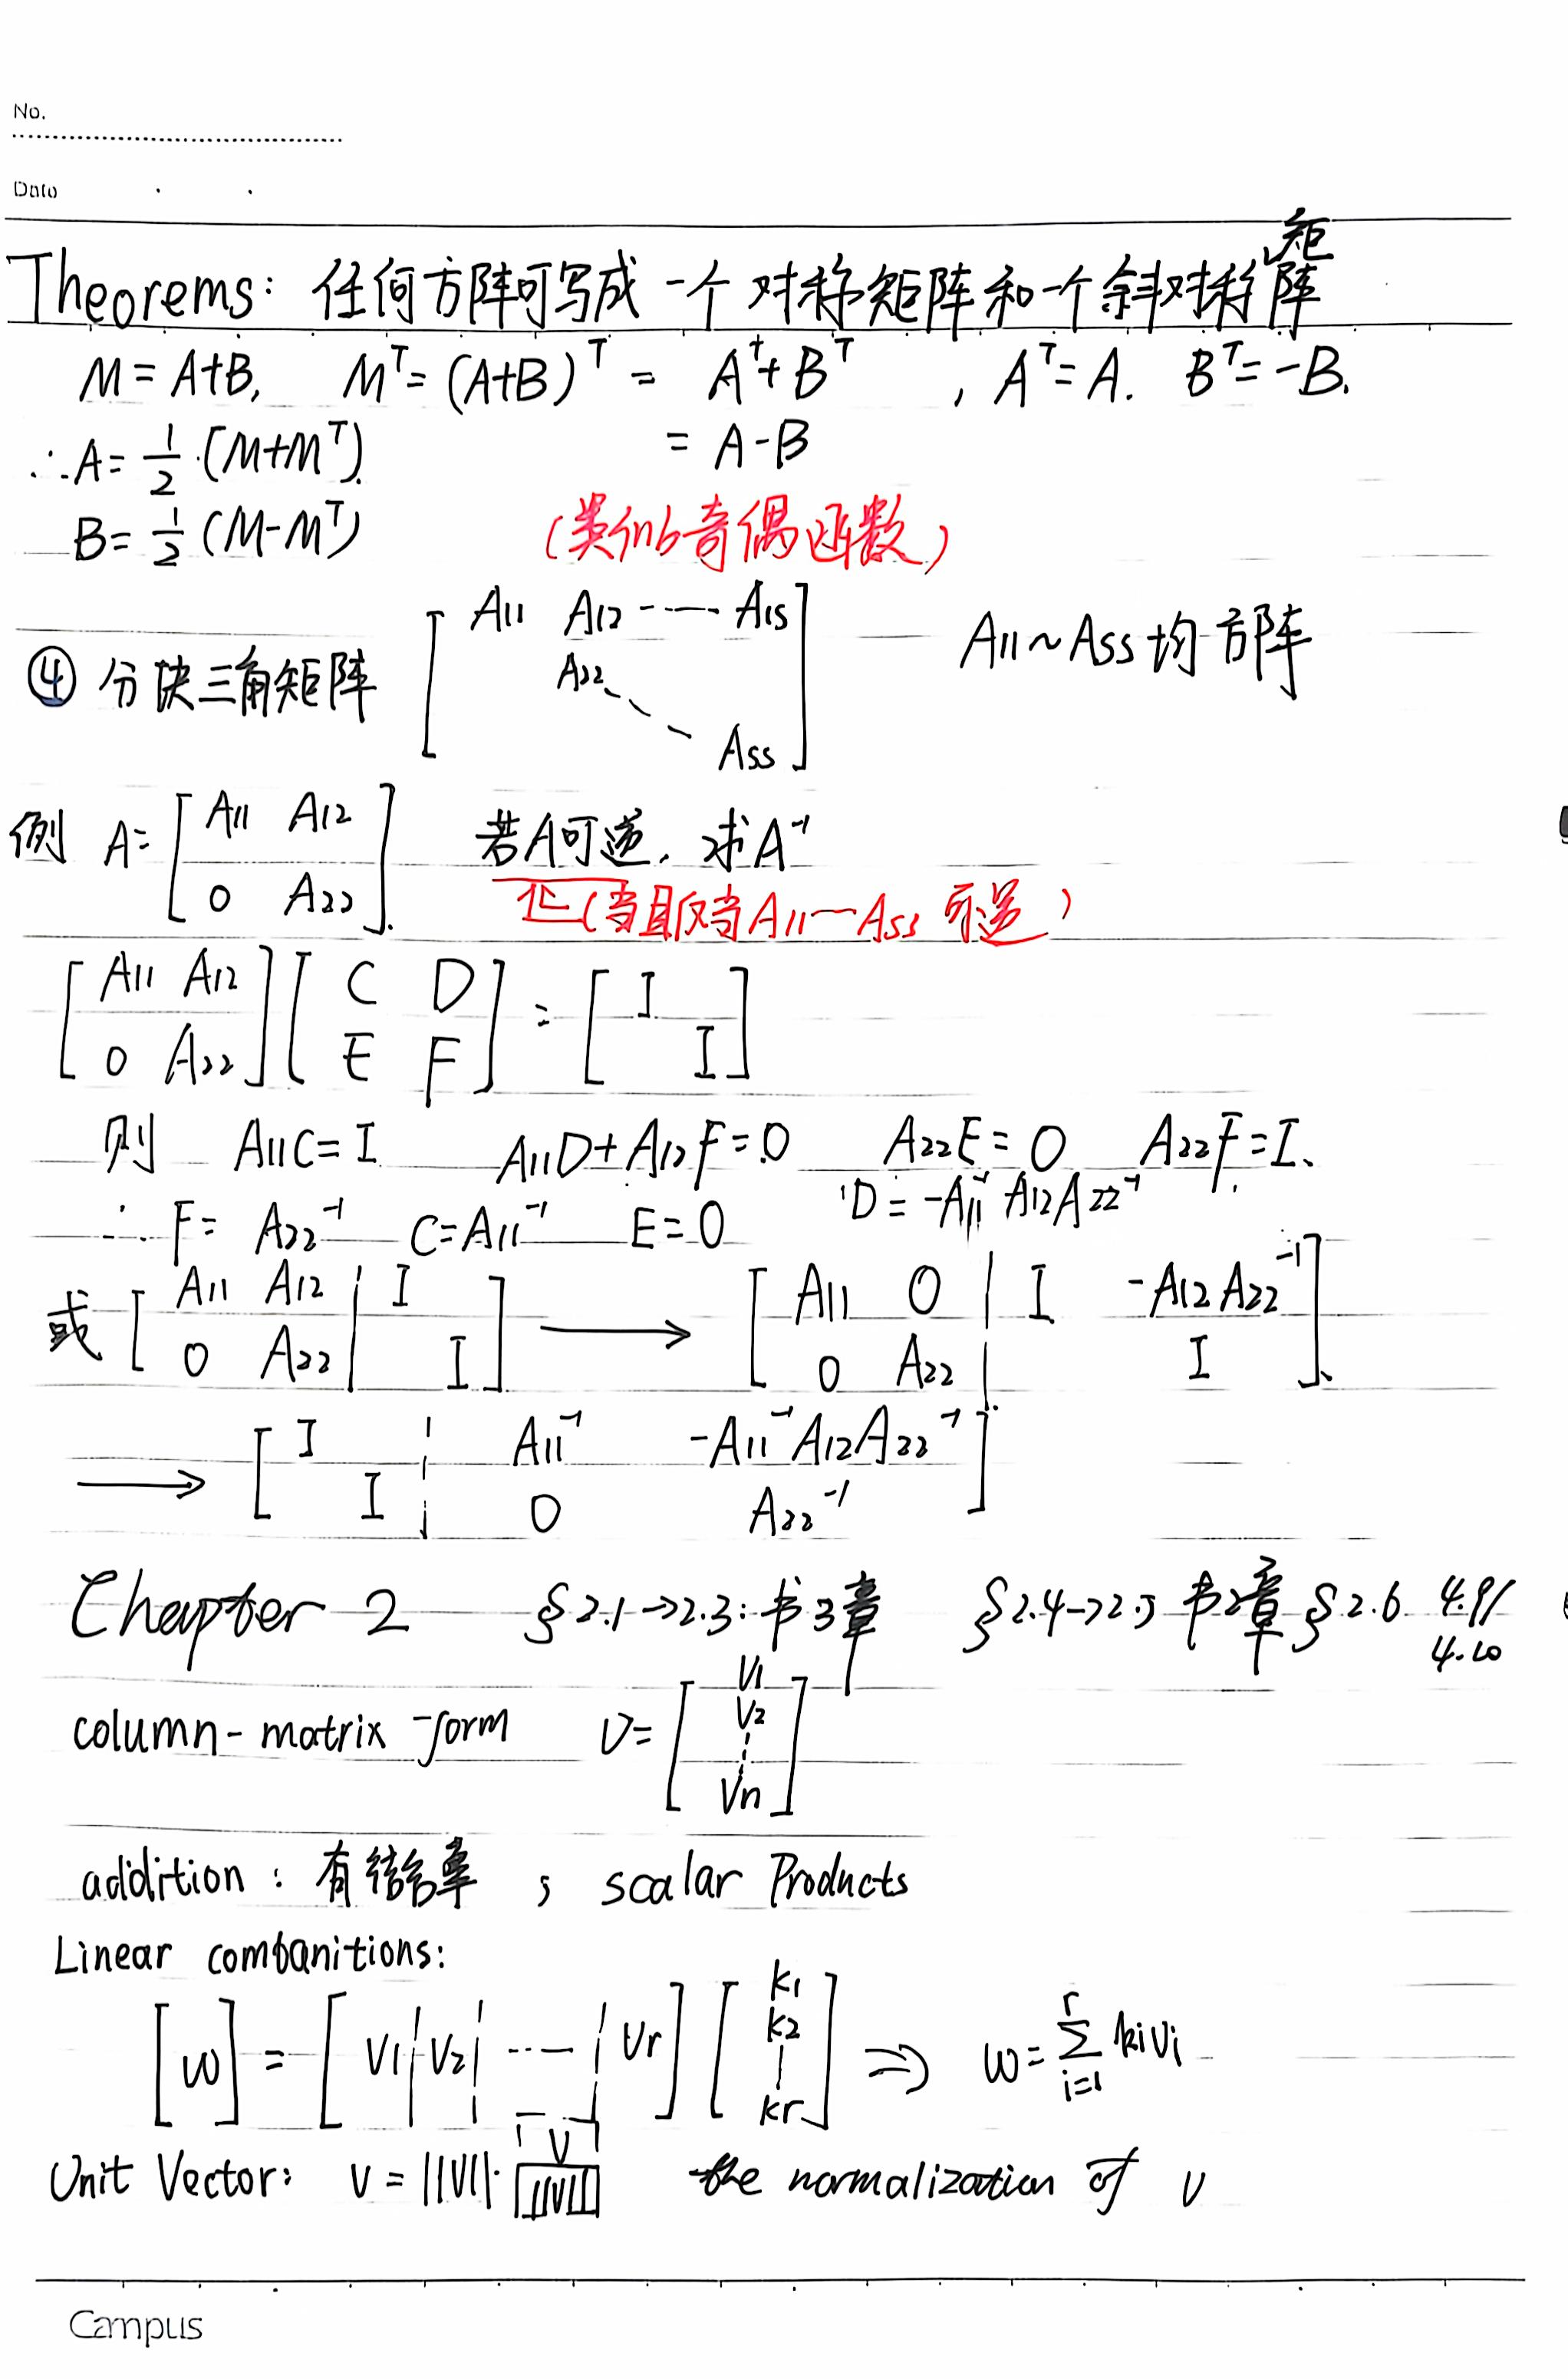 No.
Date
Theorems: 任何方阵可写成一个对称矩阵和一个斜对称矩阵
M = A+B, Mᵀ = (A+B)ᵀ = Aᵀ+Bᵀ , Aᵀ = A. Bᵀ = -B.
∴ A = 1/2 · (M+Mᵀ). = A-B
B = 1/2 (M-Mᵀ) (类似奇偶函数)
④ 分块三角矩阵 [ A11 A12 ---- A1s
A22
Ass ] A11 ~ Ass 均方阵
例 A = [ A11 A12
0 A22 ] 若A可逆, 求A⁻¹
(当且仅当A11 — Ass 可逆)
[ A11 A12
0 A22 ] [ C D
E F ] = [ I
I ]
则 A11C = I A11D + A12F = 0 A22E = 0 A22F = I.
∴ F = A22⁻¹ C = A11⁻¹ E = 0 D = -A11⁻¹A12A22⁻¹
或 [ A11 A12 | I
0 A22 | I ] → [ A11 0 | I -A12A22⁻¹
0 A22 | I ]
→ [ I ¦ A11⁻¹ -A11⁻¹A12A22⁻¹
I ¦ 0 A22⁻¹ ]
Chapter 2 §2.1→2.3: 书3章 §2.4→2.5 书2章 §2.6 4.9/
4.10
column-matrix form v = [ v1
v2
⋮
vn ]
addition : 有结合率 ; scalar Products
Linear combanitions:
[w] = [ v1 ¦ v2 ¦ ---- ¦ vr ] [ k1
k2
|
kr ] ⇒ w = Σ_{i=1}^{r} kivi
Unit Vector: v = ||v|| · v/||v|| the normalization of v
Campus